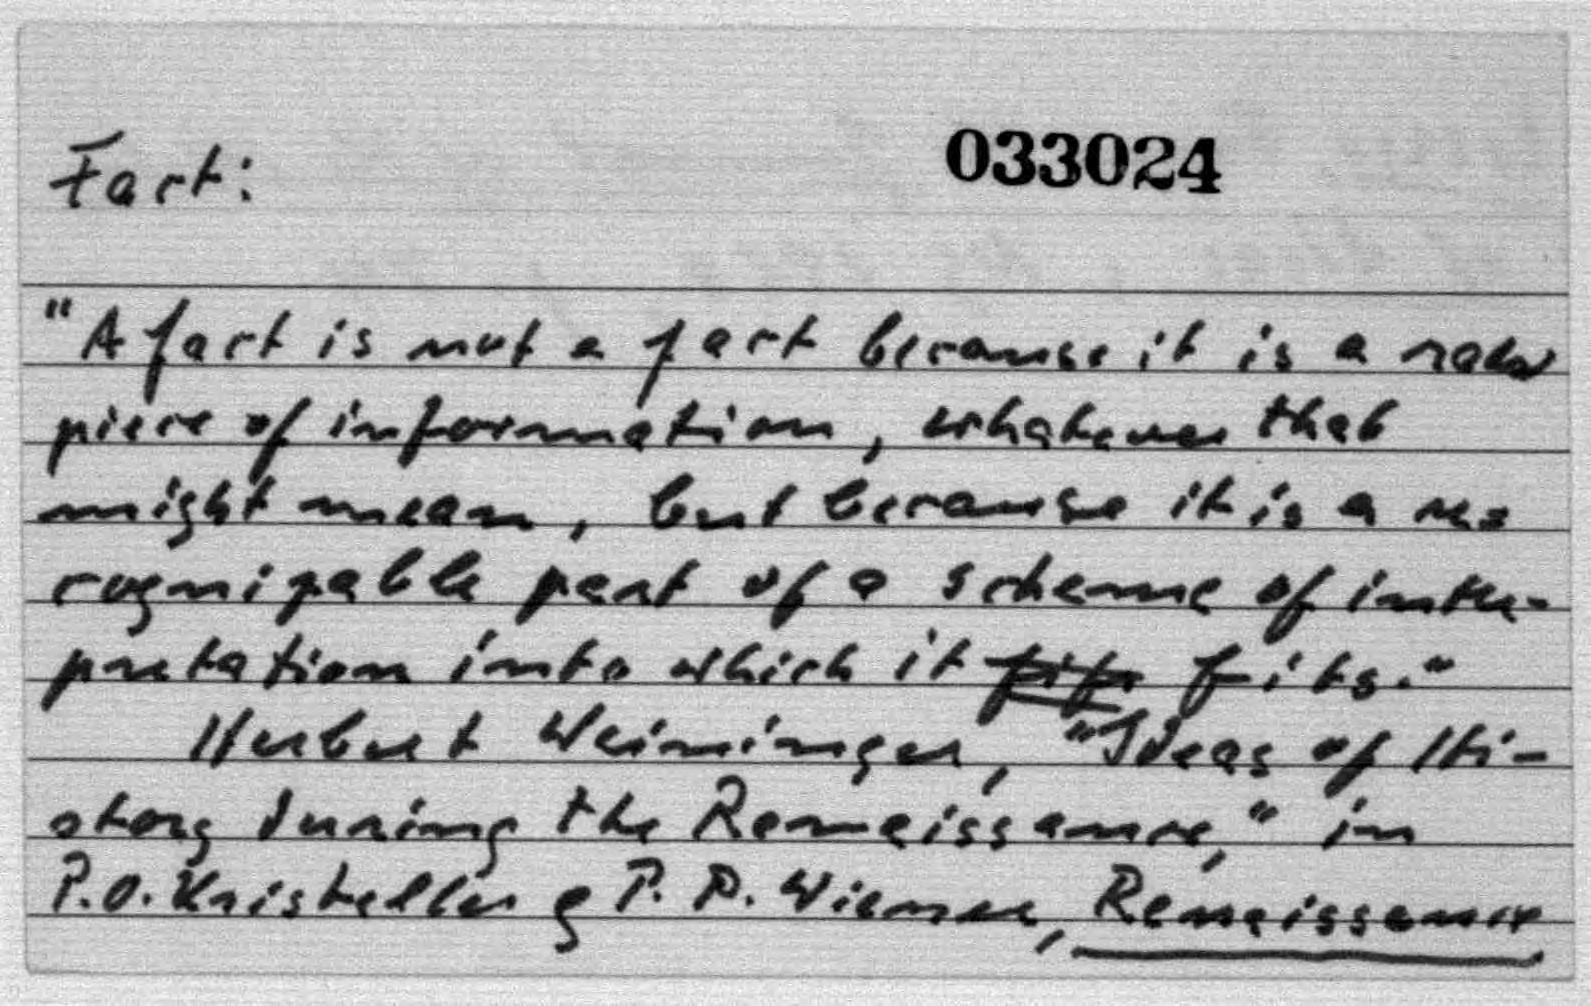 Fact:
033024
"A fact is not a fact because it is a raw
piece of information, whatever that
might mean, but because it is a re=
cognizable part of a scheme of inter-
pretation into which it fits."
Herbert Weisinger, "Ideas of Hi-
story during the Renaissance," in
P.O. Kristeller & P. P. Wiener, Renaissance